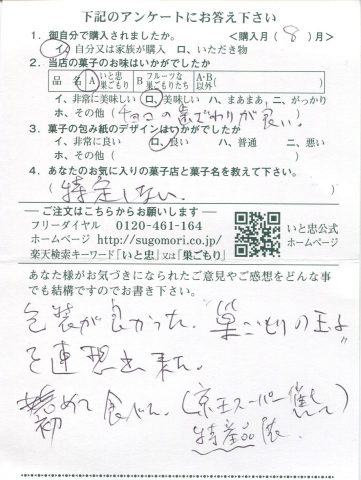 下記のアンケートにお答え下さい
1. 御自分で購入されましたか。 <購入月( 8 )月>
イ、自分又は家族が購入 ロ、いただき物
2. 当店の菓子のお味はいかがでしたか
品 名 A いと忠巣ごもり B フルーツな巣ごもりたち A・B以外( )
イ、非常に美味しい ロ、美味しい ハ、まあまあ、ニ、がっかり
ホ、その他 (チョコの歯ざわりが良い。)
3. 菓子の包み紙のデザインはいかがでしたか
イ、非常に良い ロ、良い ハ、普通 ニ、悪い
ホ、その他 ( )
4. あなたのお気に入りの菓子店と菓子名を教えて下さい。
(特定しない。)
― ご注文はこちらからお願いします ―
フリーダイヤル 0120-461-164
ホームページ http://sugomori.co.jp/
楽天検索キーワード「いと忠」又は「巣ごもり」
いと忠公式
ホームページ
あなた様がお気づきになられたご意見やご感想をどんな事
でも結構ですのでお書き下さい。
包装が良かった。"巣ごもりの玉子"
を連想出来た。
初めて食べた。(京王スーパー催し
特産品展。